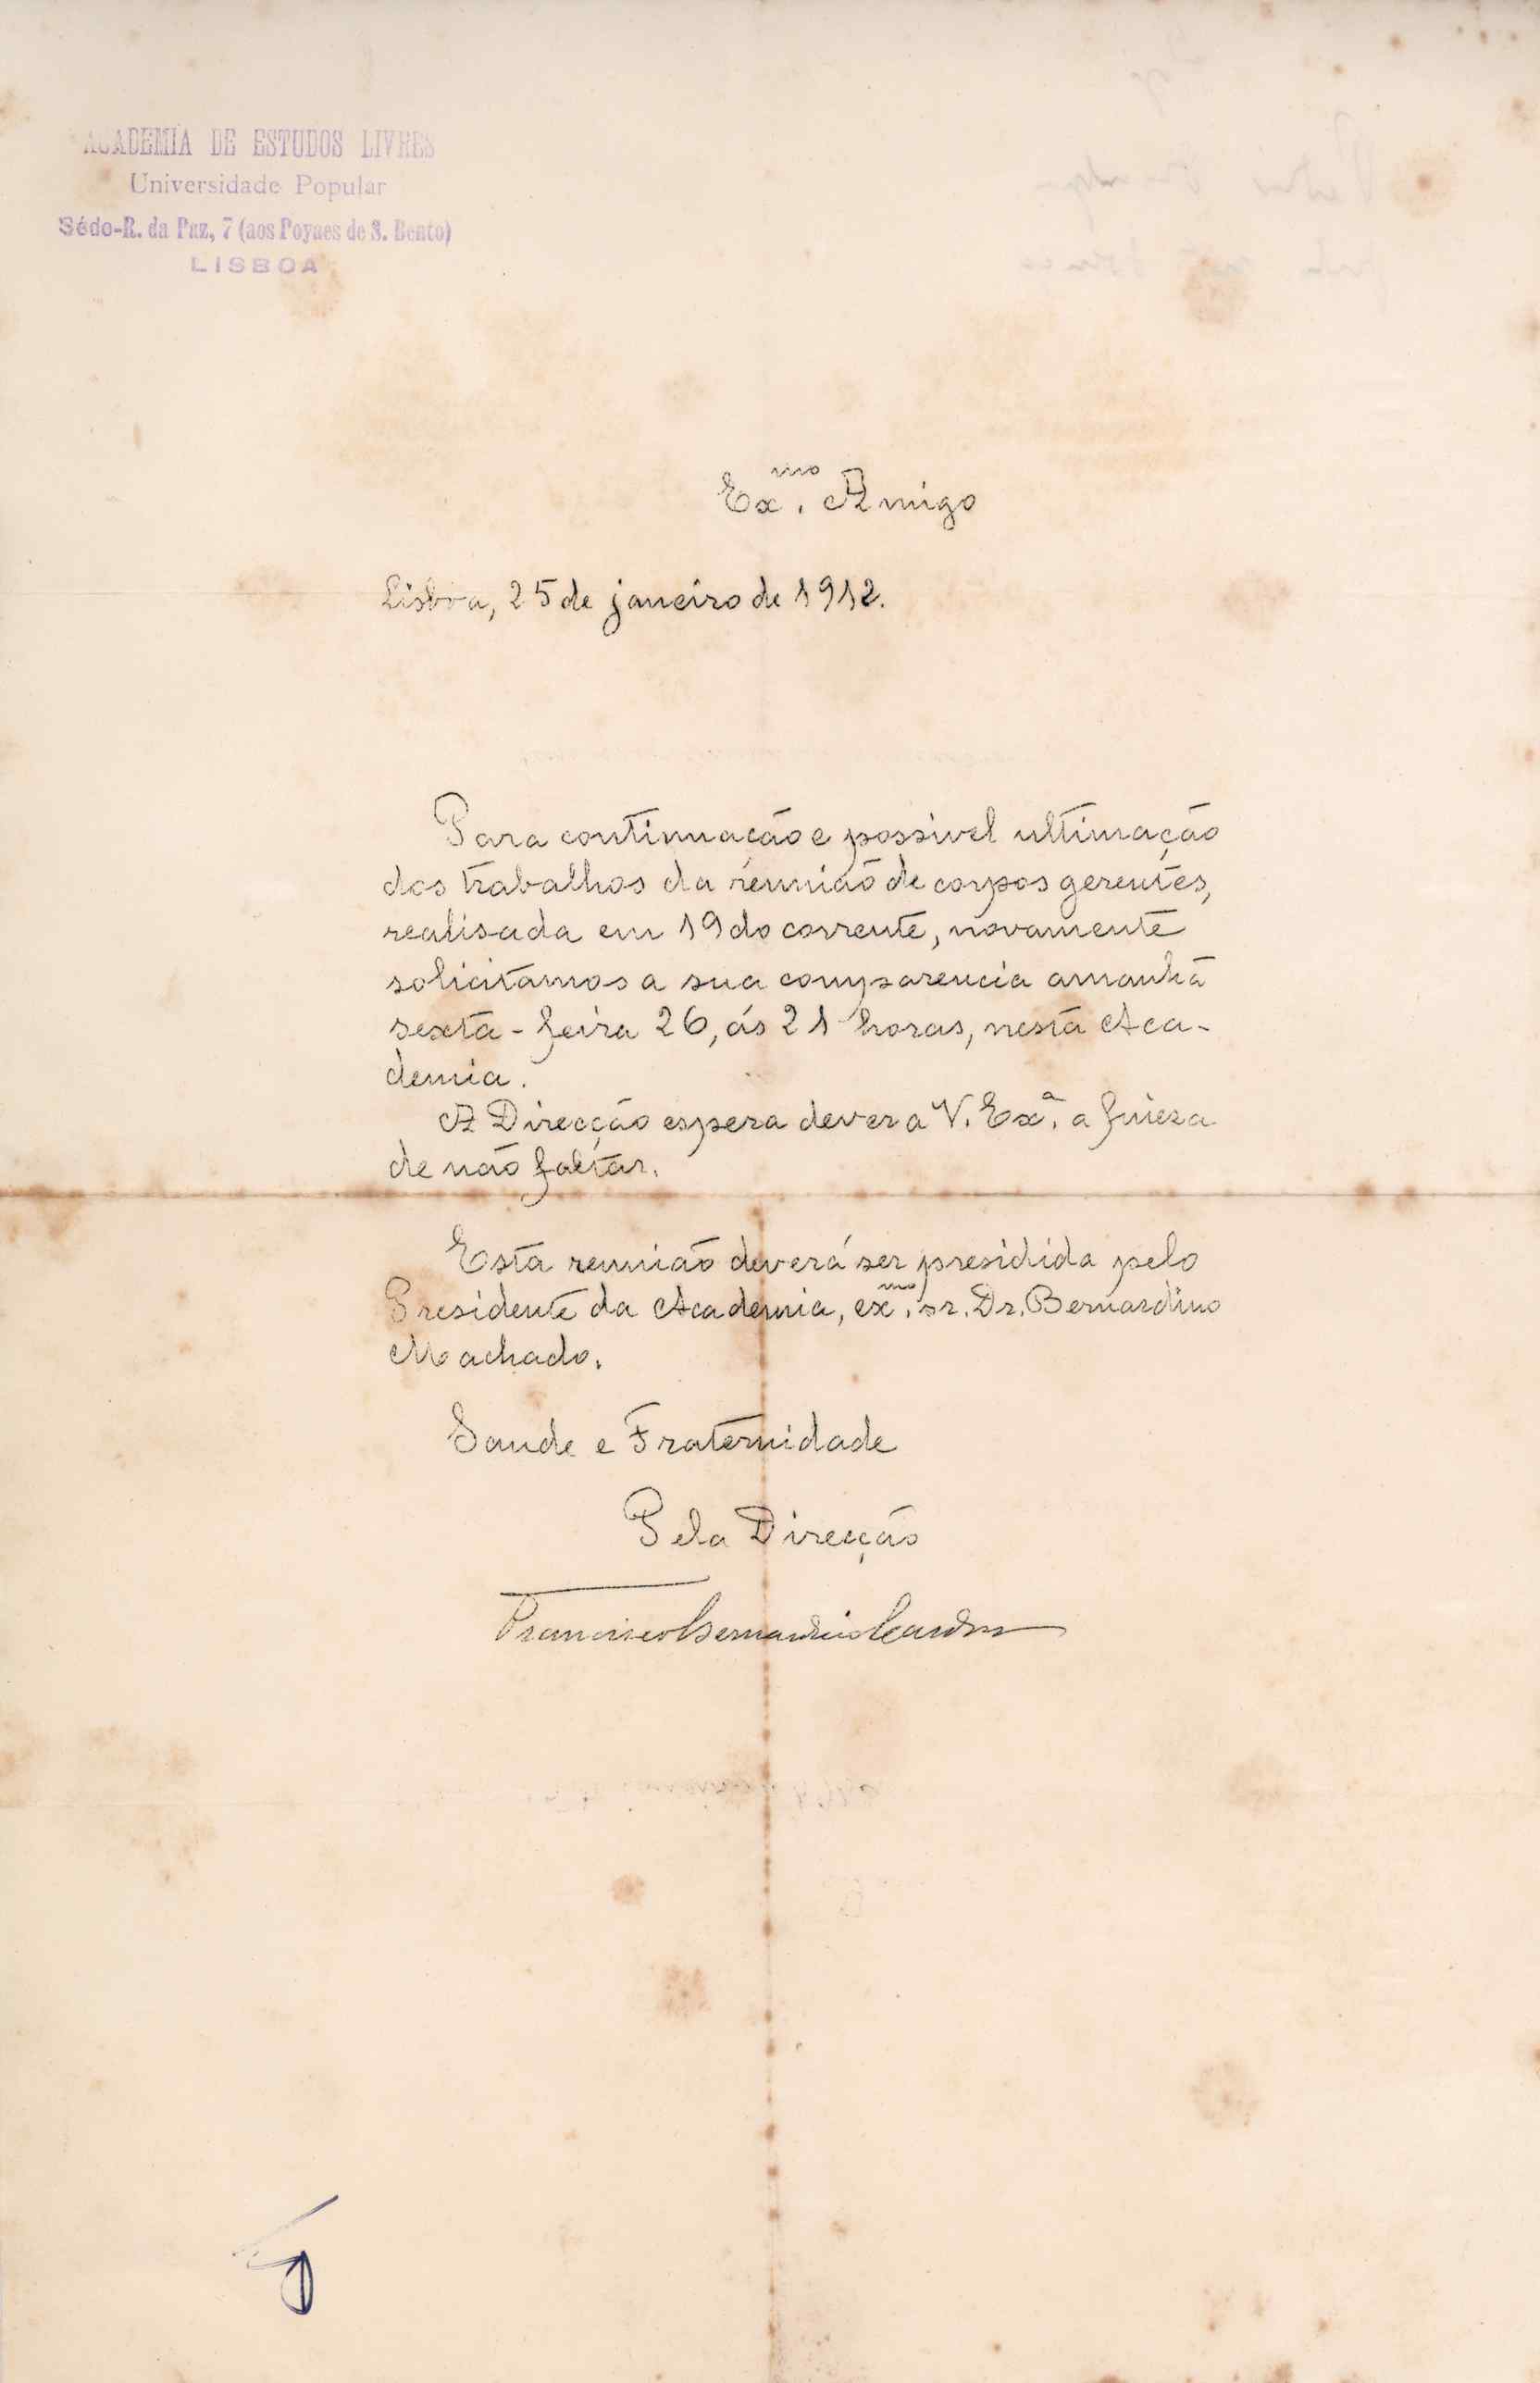 ACADEMIA DE ESTUDOS LIVRES
Universidade Popular
Séde-R. da Paz, 7 (aos Poyaes de S. Bento)
LISBOA
Ex.mo Amigo
Lisboa, 25 de janeiro de 1912.
Para continuação e possivel ultimação
dos trabalhos da reunião de corpos gerentes,
realisada em 19 do corrente, novamente
solicitamos a sua comparencia amanhã
sexta-feira 26, ás 21 horas, nesta Aca-
demia.
A Direcção espera dever a V. Ex.a a fineza
de não faltar.
Esta reunião deverá ser presidida pelo
Presidente da Academia, ex.mo sr. Dr. Bernardino
Machado.
Saude e Fraternidade
Pela Direcção
Francisco Bernardino Cardoso